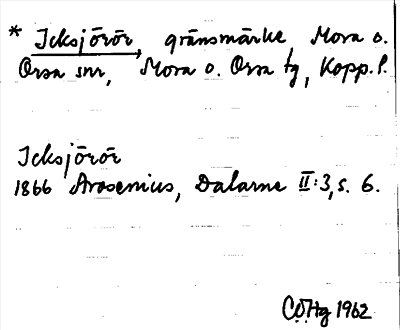 * Icksjörör, gränsmärke, Mora o.
Orsa snr, Mora o. Orsa tg, Kopp. l.
Icksjörör
1866 Arosenius, Dalarne II:3, s. 6.
1962